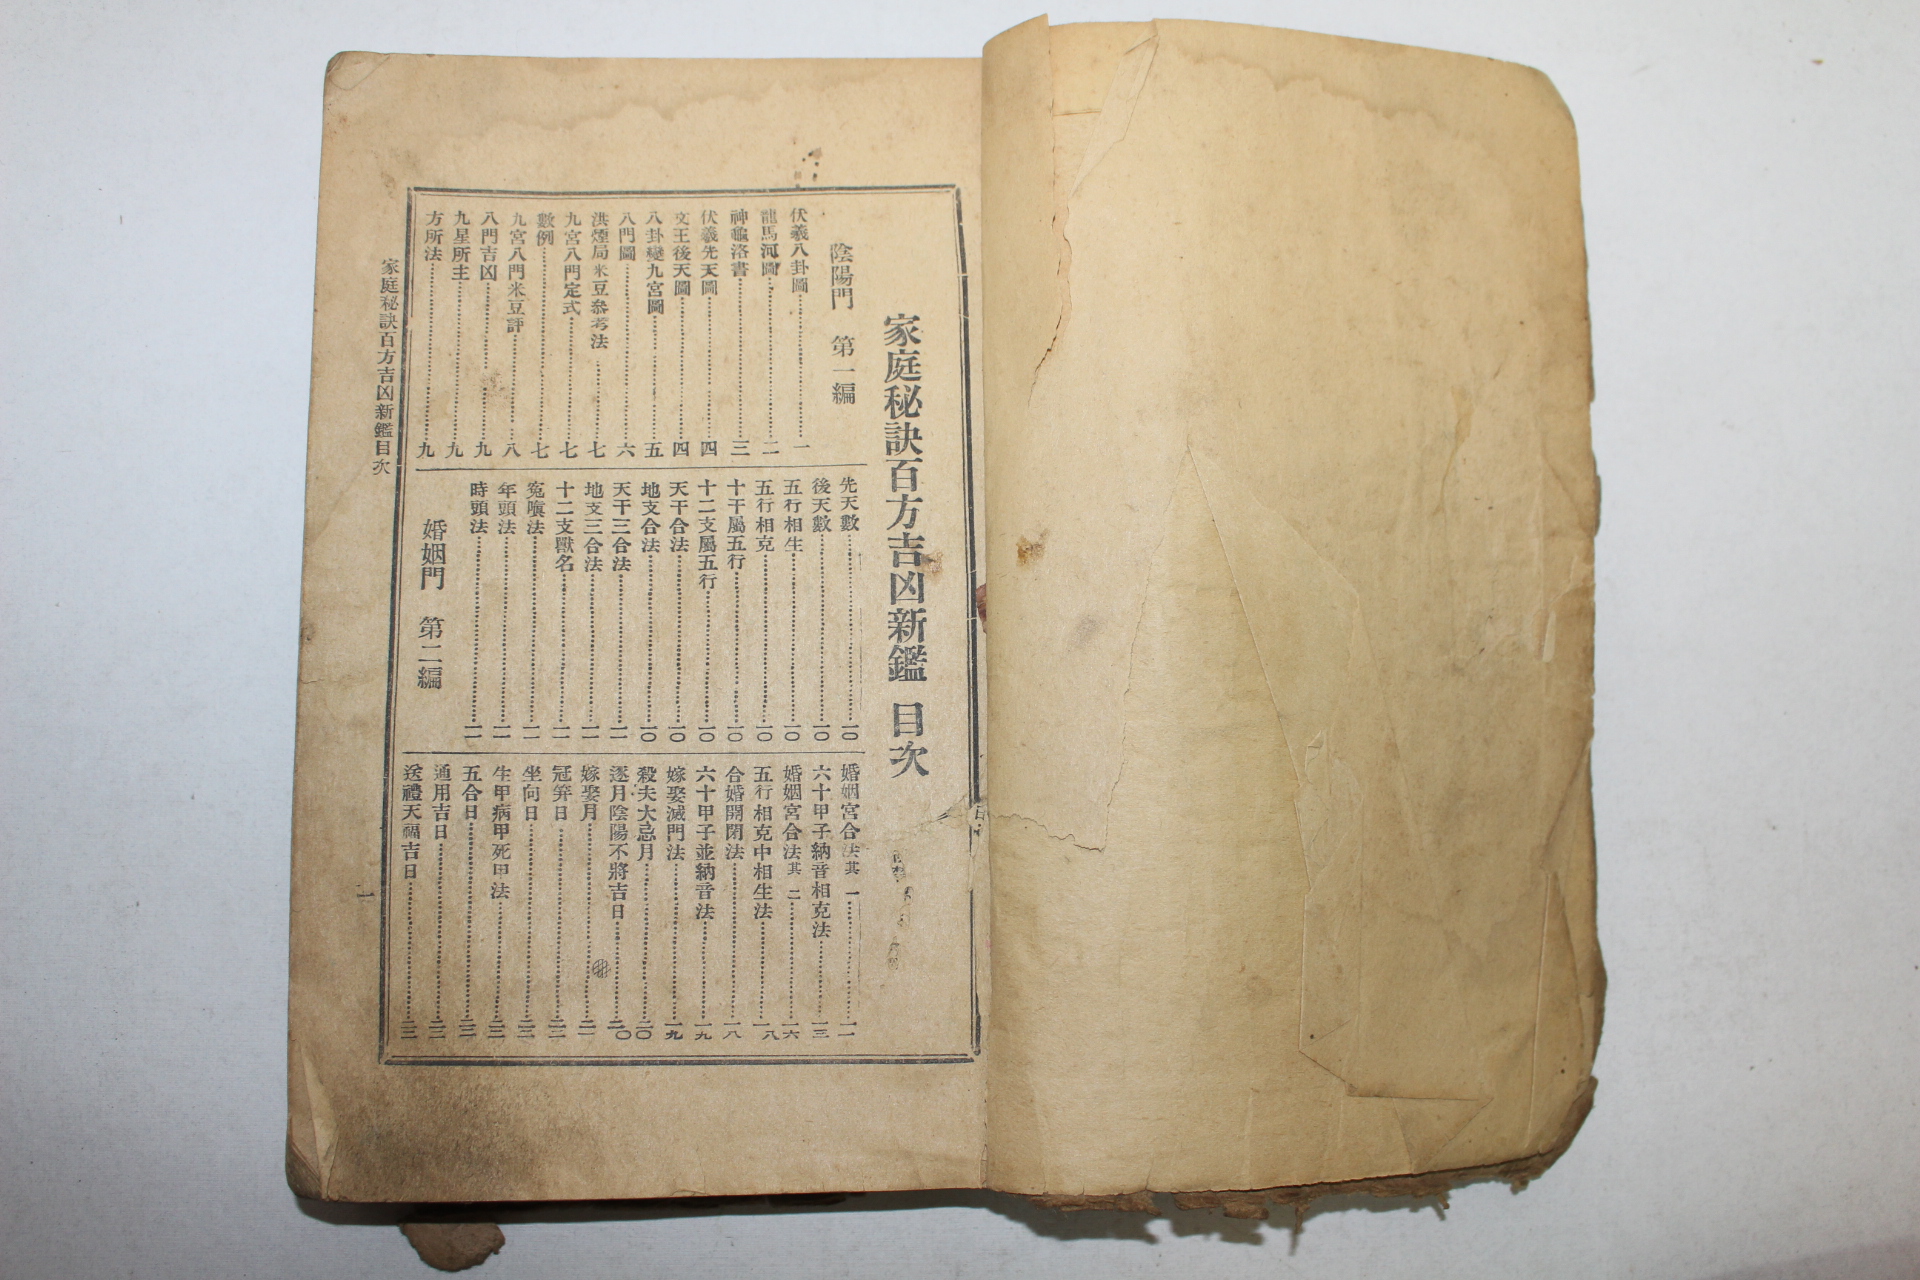 家庭秘訣百方吉凶新鑑 目次
陰陽門 第一編
伏羲八卦圖…一
龍馬河圖…二
神龜洛書…三
伏羲先天圖…四
文王後天圖…四
八卦變九宮圖…五
八門圖…六
洪煙局米豆叅考法…七
九宮八門定式…七
數例…七
九宮八門米豆評…八
八門吉凶…九
九星所主…九
方所法…九
先天數…一〇
後天數…一〇
五行相生…一〇
五行相克…一〇
十干屬五行…一〇
十二支屬五行…一〇
天干合法…一〇
地支合法…一〇
天干三合法…一一
地支三合法…一一
十二支獸名…一一
寃嗔法…一一
年頭法…一一
時頭法…一一
婚姻門 第二編
婚姻宮合法其一…一一
六十甲子納音相克法…一三
婚姻宮合法其二…一六
五行相克中相生法…一八
合婚開閉法…一八
六十甲子並納音法…一九
嫁娶滅門法…一九
殺夫大忌月…二〇
逐月陰陽不將吉日…二〇
嫁娶月…二一
冠笄日…二二
坐向日…二二
生甲病甲死甲法…二二
五合日…二二
通用吉日…二二
送禮天福吉日…二二
家庭秘訣百方吉凶新鑑目次
一